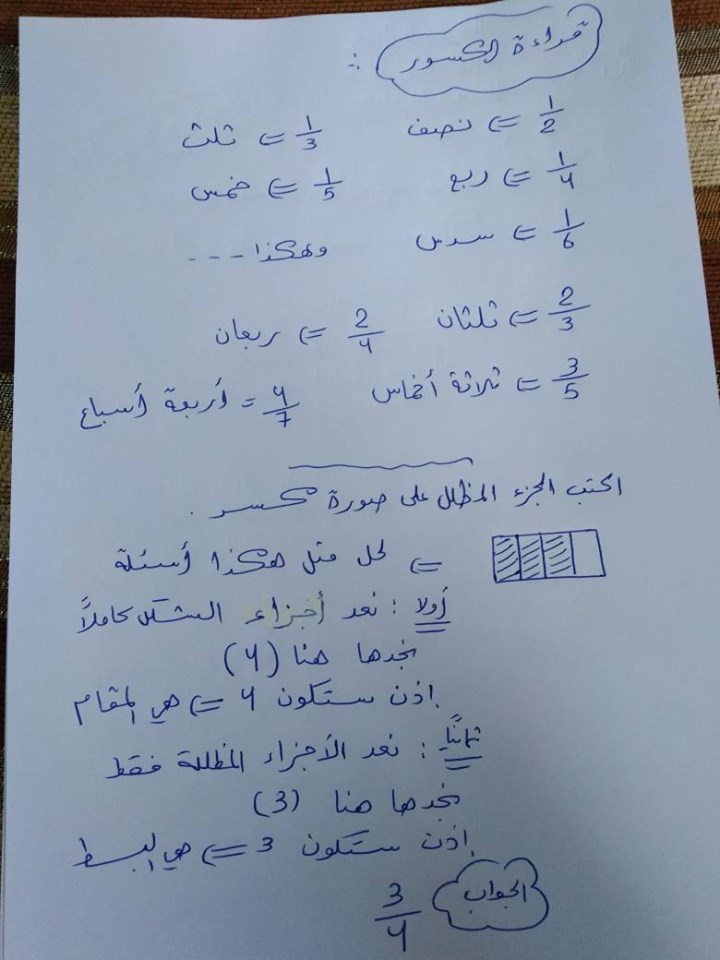 قراءة الكسور :
1/2 ⇐ نصف 1/3 ⇐ ثلث
1/4 ⇐ ربع 1/5 ⇐ خمس
1/6 ⇐ سدس وهكذا ---
2/3 ⇐ ثلثان 2/4 ⇐ ربعان
3/5 ⇐ ثلاثة أخماس 4/7 = أربعة أسباع
اكتب الجزء المظلل على صورة كسر .
⇐ لحل مثل هكذا أسئلة
أولا : نعد أجزاء الشكل كاملاً
نجدها هنا (4)
إذن ستكون 4 ⇐ هي المقام
ثانيًا : نعد الأجزاء المظللة فقط
نجدها هنا (3)
إذن ستكون 3 ⇐ هي البسط
الجواب 3/4